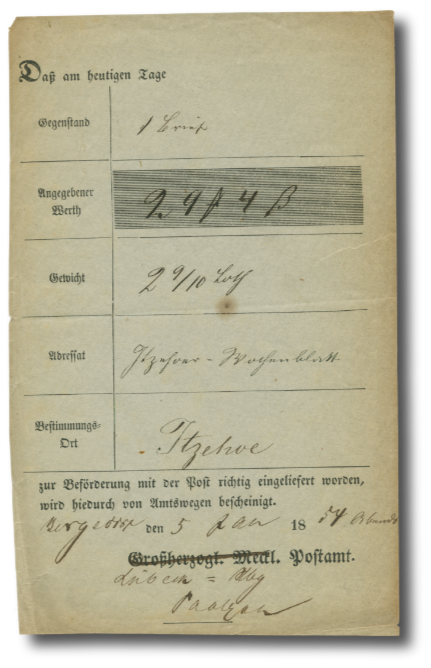 Daß am heutigen Tage
Gegenstand 1 Brief
Angegebener Werth 29 ß 4 ß
Gewicht 2 9/10 Loth
Adressat Itzehoer - Wochenblatt
Bestimmungs-Ort Itzehoe
zur Beförderung mit der Post richtig eingeliefert worden,
wird hiedurch von Amtswegen bescheinigt.
Bergedorf den 5 Jan 18 54 Abends
Großherzogl. Meckl. Postamt.
Lübeck = Hbg